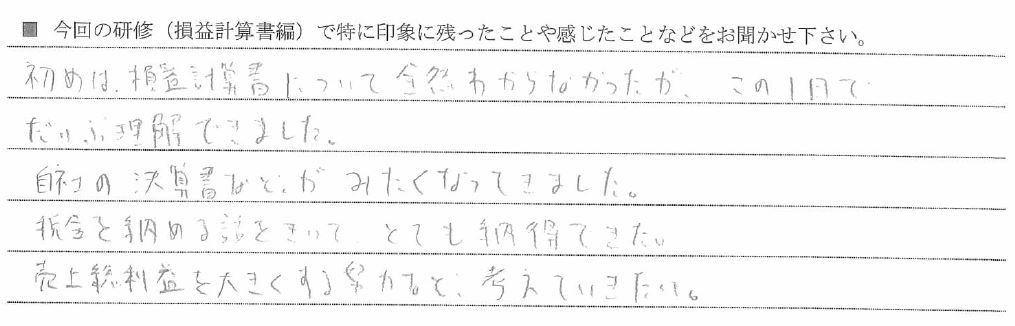 ■ 今回の研修（損益計算書編）で特に印象に残ったことや感じたことなどをお聞かせ下さい。
初めは、損益計算書について全然わからなかったが、この1日で
だいぶ理解できました。
自社の決算書などがみたくなってきました。
税金を納める話をきいて、とても納得できた。
売上総利益を大きくする努力など、考えていきたい。